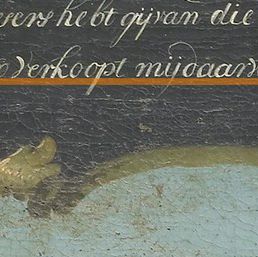 rers hebt gij van die
verkoopt mij daarv